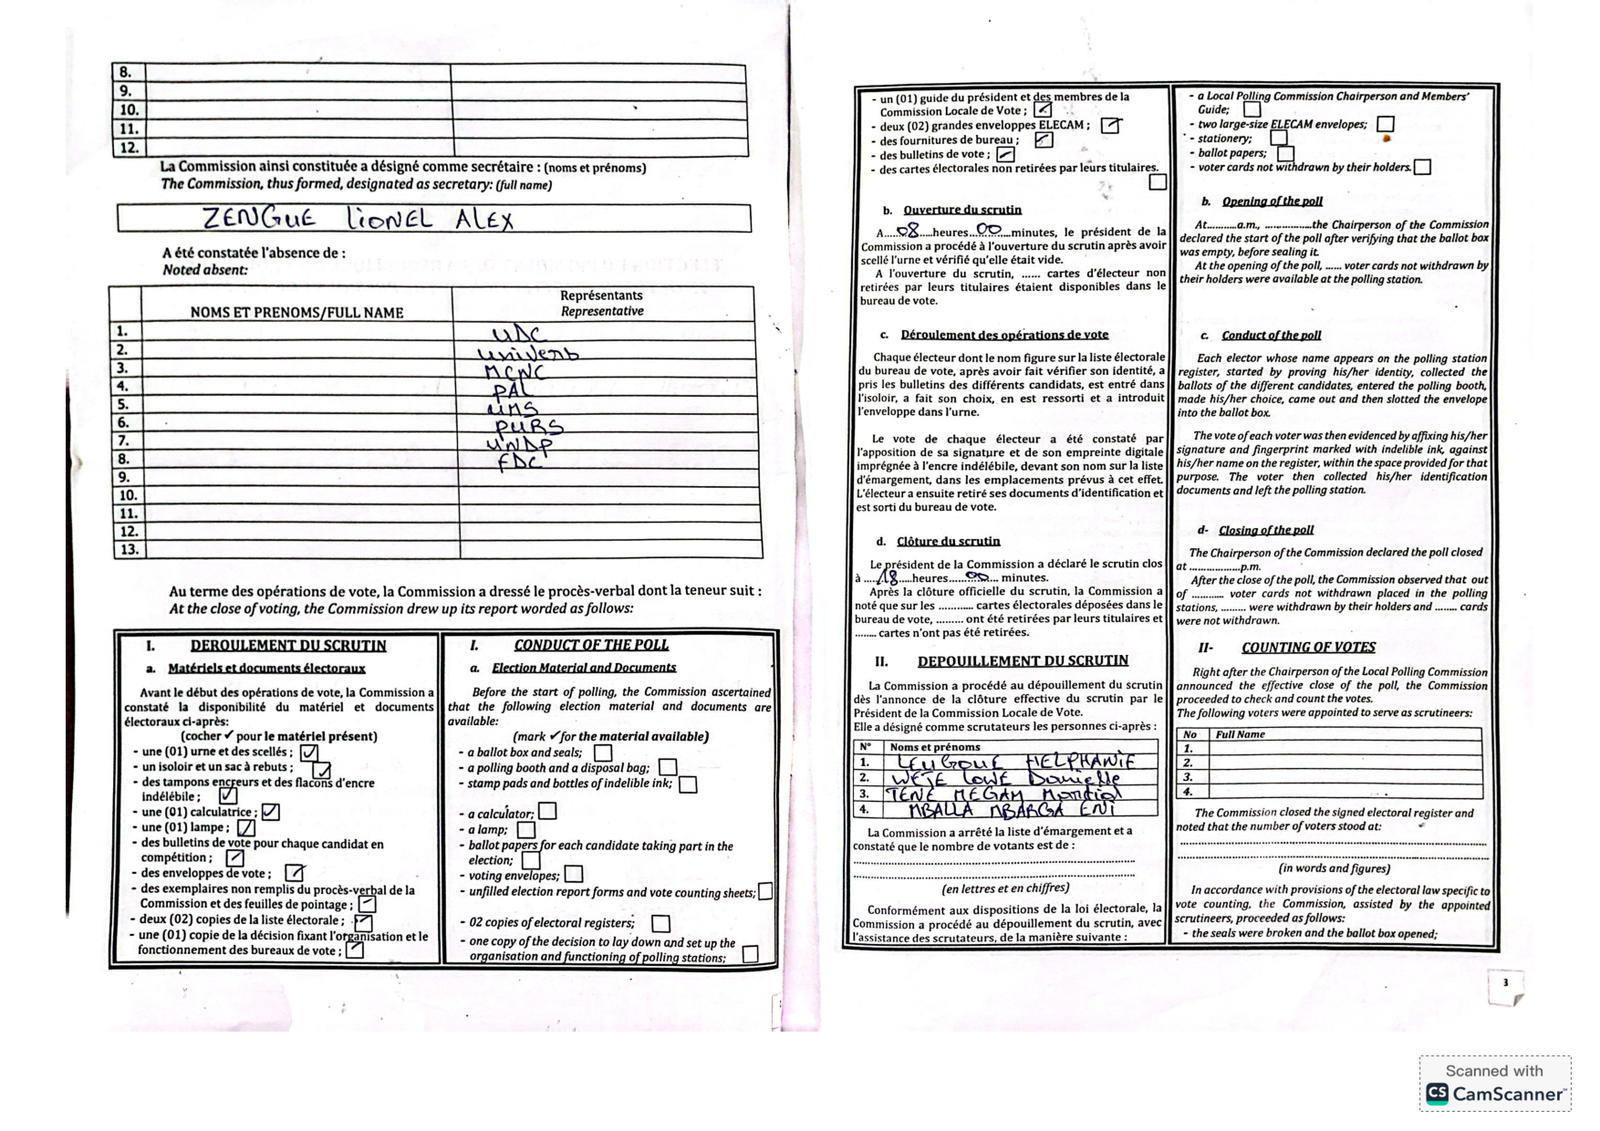 8.
9.
10.
11.
12.
La Commission ainsi constituée a désigné comme secrétaire : (noms et prénoms)
The Commission, thus formed, designated as secretary: (full name)
ZENGUE LIONEL ALEX
A été constatée l'absence de :
Noted absent:
NOMS ET PRENOMS/FULL NAME
Représentants
Representative
1. UDC
2. univers
3. MCNC
4. PAL
5. UMS
6. PURS
7. UNDP
8. FDC
9.
10.
11.
12.
13.
Au terme des opérations de vote, la Commission a dressé le procès-verbal dont la teneur suit :
At the close of voting, the Commission drew up its report worded as follows:
I. DEROULEMENT DU SCRUTIN
a. Matériels et documents électoraux
Avant le début des opérations de vote, la Commission a
constaté la disponibilité du matériel et documents
électoraux ci-après:
(cocher ✓ pour le matériel présent)
- une (01) urne et des scellés ; ☑
- un isoloir et un sac à rebuts ; ☑
- des tampons encreurs et des flacons d'encre
indélébile ; ☑
- une (01) calculatrice ; ☑
- une (01) lampe ; ☑
- des bulletins de vote pour chaque candidat en
compétition ; ☑
- des enveloppes de vote ; ☑
- des exemplaires non remplis du procès-verbal de la
Commission et des feuilles de pointage ; ☑
- deux (02) copies de la liste électorale ; ☑
- une (01) copie de la décision fixant l'organisation et le
fonctionnement des bureaux de vote ; ☑
I. CONDUCT OF THE POLL
a. Election Material and Documents
Before the start of polling, the Commission ascertained
that the following election material and documents are
available:
(mark ✓ for the material available)
- a ballot box and seals; ☐
- a polling booth and a disposal bag; ☐
- stamp pads and bottles of indelible ink; ☐
- a calculator; ☐
- a lamp; ☐
- ballot papers for each candidate taking part in the
election; ☐
- voting envelopes; ☐
- unfilled election report forms and vote counting sheets; ☐
- 02 copies of electoral registers; ☐
- one copy of the decision to lay down and set up the
organisation and functioning of polling stations; ☐
- un (01) guide du président et des membres de la
Commission Locale de Vote ; ☑
- deux (02) grandes enveloppes ELECAM ; ☑
- des fournitures de bureau ; ☑
- des bulletins de vote ; ☑
- des cartes électorales non retirées par leurs titulaires.
☐
b. Ouverture du scrutin
A.....08.....heures...00...minutes, le président de la
Commission a procédé à l'ouverture du scrutin après avoir
scellé l'urne et vérifié qu'elle était vide.
A l'ouverture du scrutin, ...... cartes d'électeur non
retirées par leurs titulaires étaient disponibles dans le
bureau de vote.
c. Déroulement des opérations de vote
Chaque électeur dont le nom figure sur la liste électorale
du bureau de vote, après avoir fait vérifier son identité, a
pris les bulletins des différents candidats, est entré dans
l'isoloir, a fait son choix, en est ressorti et a introduit
l'enveloppe dans l'urne.
Le vote de chaque électeur a été constaté par
l'apposition de sa signature et de son empreinte digitale
imprégnée à l'encre indélébile, devant son nom sur la liste
d'émargement, dans les emplacements prévus à cet effet.
L'électeur a ensuite retiré ses documents d'identification et
est sorti du bureau de vote.
d. Clôture du scrutin
Le président de la Commission a déclaré le scrutin clos
à ....18....heures.....00... minutes.
Après la clôture officielle du scrutin, la Commission a
noté que sur les ........... cartes électorales déposées dans le
bureau de vote, ......... ont été retirées par leurs titulaires et
........ cartes n'ont pas été retirées.
II. DEPOUILLEMENT DU SCRUTIN
La Commission a procédé au dépouillement du scrutin
dès l'annonce de la clôture effective du scrutin par le
Président de la Commission Locale de Vote.
Elle a désigné comme scrutateurs les personnes ci-après :
N° Noms et prénoms
1. LEUGOUE HELPHANIE
2. WETE LOWE Danielle
3. TENE MEGAM Mondial
4. MBALLA MBARGA ENI
La Commission a arrêté la liste d'émargement et a
constaté que le nombre de votants est de :
(en lettres et en chiffres)
Conformément aux dispositions de la loi électorale, la
Commission a procédé au dépouillement du scrutin, avec
l'assistance des scrutateurs, de la manière suivante :
- a Local Polling Commission Chairperson and Members'
Guide; ☐
- two large-size ELECAM envelopes; ☐
- stationery; ☐
- ballot papers; ☐
- voter cards not withdrawn by their holders. ☐
b. Opening of the poll
At...........a.m., .................the Chairperson of the Commission
declared the start of the poll after verifying that the ballot box
was empty, before sealing it.
At the opening of the poll, ...... voter cards not withdrawn by
their holders were available at the polling station.
c. Conduct of the poll
Each elector whose name appears on the polling station
register, started by proving his/her identity, collected the
ballots of the different candidates, entered the polling booth,
made his/her choice, came out and then slotted the envelope
into the ballot box.
The vote of each voter was then evidenced by affixing his/her
signature and fingerprint marked with indelible ink, against
his/her name on the register, within the space provided for that
purpose. The voter then collected his/her identification
documents and left the polling station.
d- Closing of the poll
The Chairperson of the Commission declared the poll closed
at ...................p.m.
After the close of the poll, the Commission observed that out
of ........... voter cards not withdrawn placed in the polling
stations, ......... were withdrawn by their holders and ........ cards
were not withdrawn.
II- COUNTING OF VOTES
Right after the Chairperson of the Local Polling Commission
announced the effective close of the poll, the Commission
proceeded to check and count the votes.
The following voters were appointed to serve as scrutineers:
No Full Name
1.
2.
3.
4.
The Commission closed the signed electoral register and
noted that the number of voters stood at:
(in words and figures)
In accordance with provisions of the electoral law specific to
vote counting, the Commission, assisted by the appointed
scrutineers, proceeded as follows:
- the seals were broken and the ballot box opened;
3
Scanned with
CS CamScanner